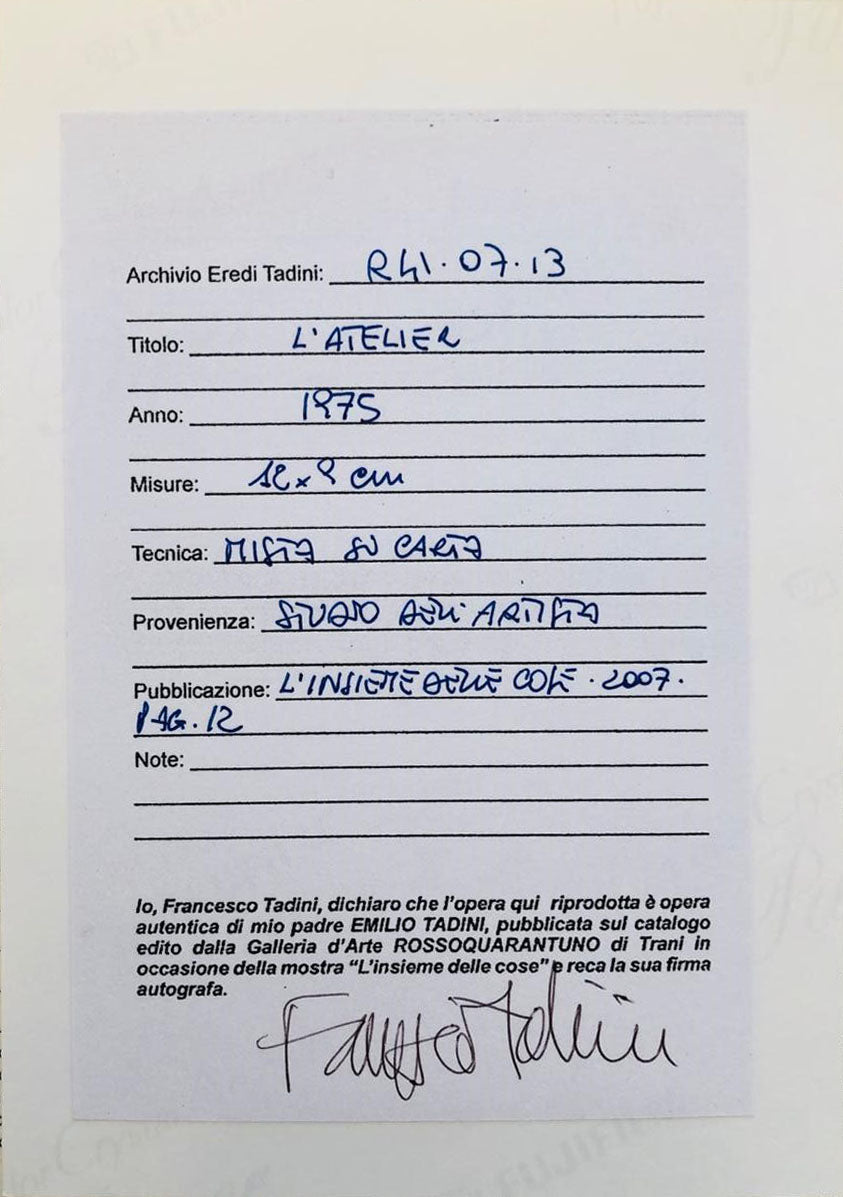 Archivio Eredi Tadini: R41.07.13
Titolo: L'ATELIER
Anno: 1975
Misure: 12x9 cm
Tecnica: MISTA SU CARTA
Provenienza: STUDIO DELL'ARTISTA
Pubblicazione: L'INSIEME DELLE COSE . 2007 .
PAG. 12
Note:
Io, Francesco Tadini, dichiaro che l'opera qui riprodotta è opera
autentica di mio padre EMILIO TADINI, pubblicata sul catalogo
edito dalla Galleria d'Arte ROSSOQUARANTUNO di Trani in
occasione della mostra “L'insieme delle cose” e reca la sua firma
autografa.
Francesco Tadini